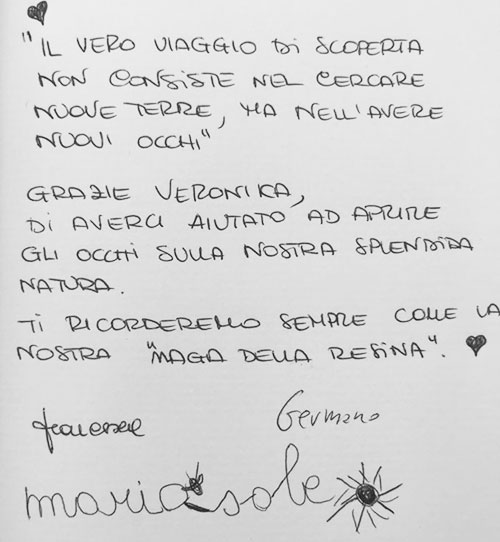 "IL VERO VIAGGIO Di SCOPERTA
NON CONSISTE NEL CERCARE
NUOVE TERRE, MA NELL'AVERE
NUOVI OCCHI"
GRAZIE VERONIKA,
Di AVERCI AIUTATO AD APRIRE
GLI OCCHI SULLA NOSTRA SPLENDIDA
NATURA.
Ti RICORDEREMO SEMPRE COME LA
NOSTRA "MAGA DELLA RESINA".
Germano
mariasole